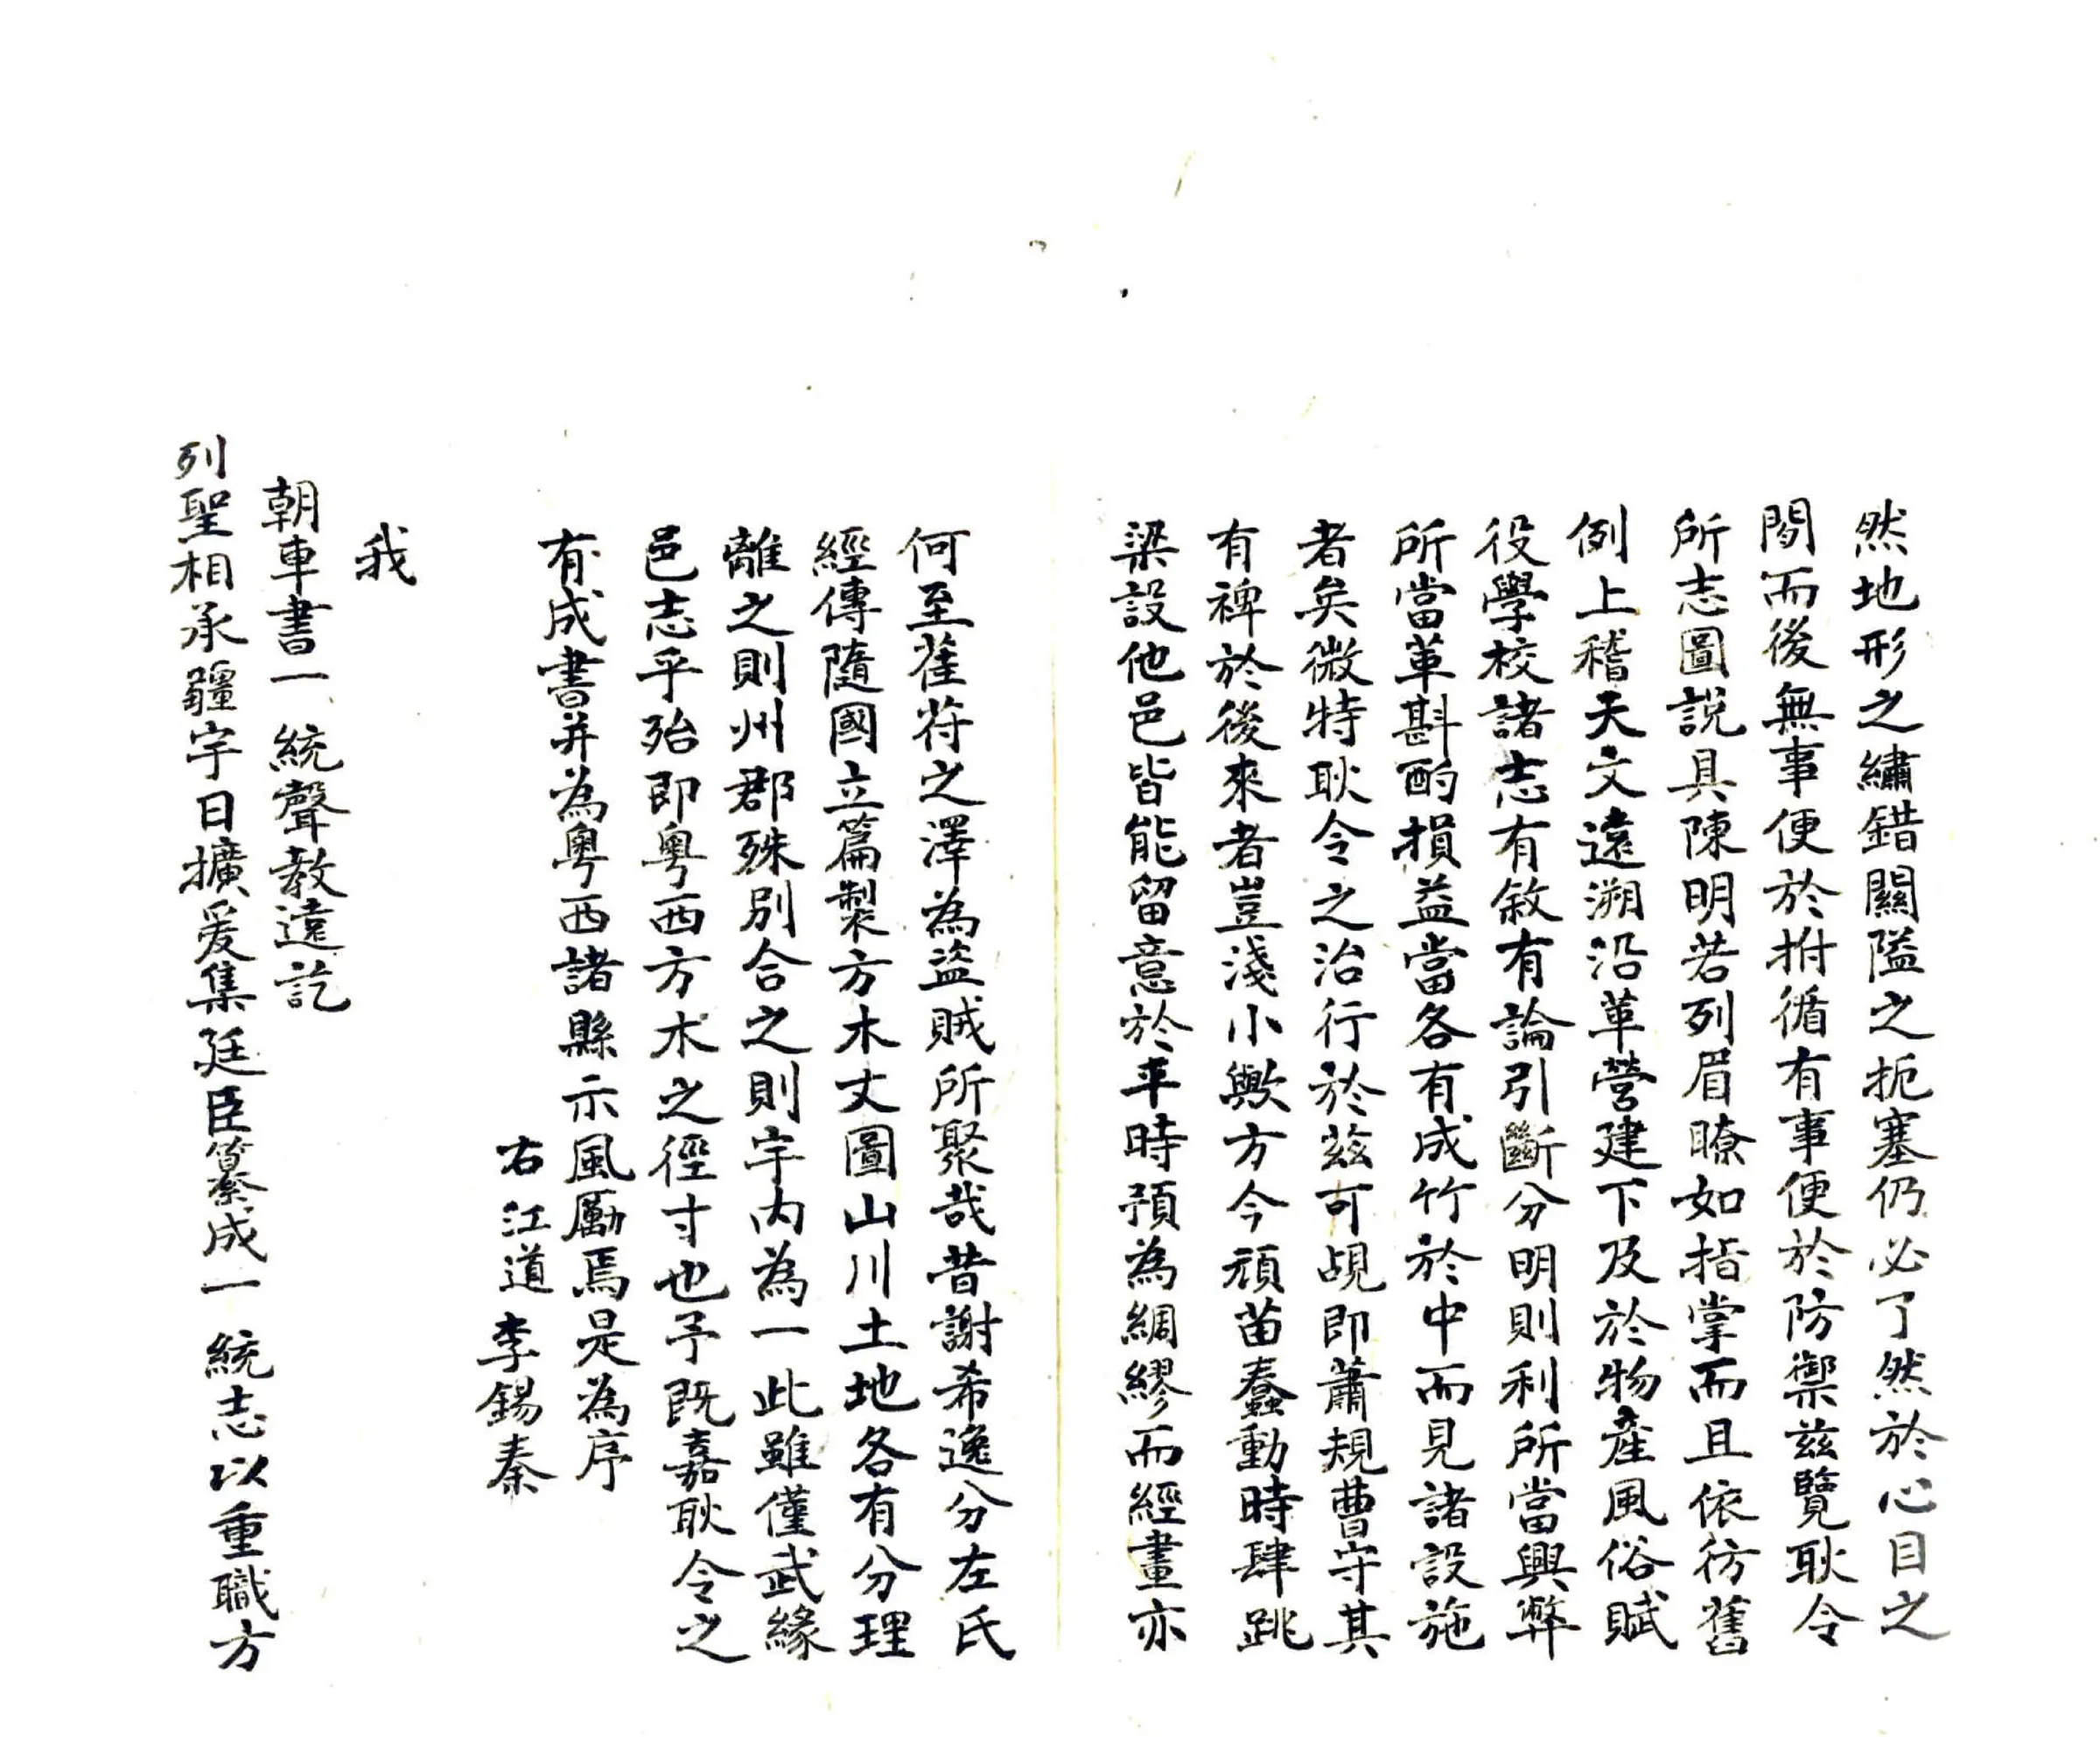 然地形之繡錯關隘之扼塞仍必了然於心目之
間而後無事便於拊循有事便於防禦茲覽耿令
所志圖說具陳明若列眉瞭如指掌而且依彷舊
例上稽天文遠溯沿革營建下及於物產風俗賦
役學校諸志有敘有論引斷分明則利所當興弊
所當革斟酌損益當各有成竹於中而見諸設施
者矣微特耿令之治行於茲可覘即蕭規曹守其
有裨於後來者豈淺小歟方今頑苗蠢動時肆跳
梁設他邑皆能留意於平時預為綢繆而經畫亦
何至萑苻之澤為盜賊所聚哉昔謝希逸分左氏
經傳隨國立篇製方木丈圖山川土地各有分理
離之則州郡殊別合之則宇內為一此雖僅武緣
邑志乎殆即粵西方木之徑寸也予既嘉耿令之
有成書并為粵西諸縣示風勵焉是為序
右江道李錫秦
我
朝車書一統聲教遠訖
列聖相承疆宇日擴爰集廷臣纂成一統志以重職方